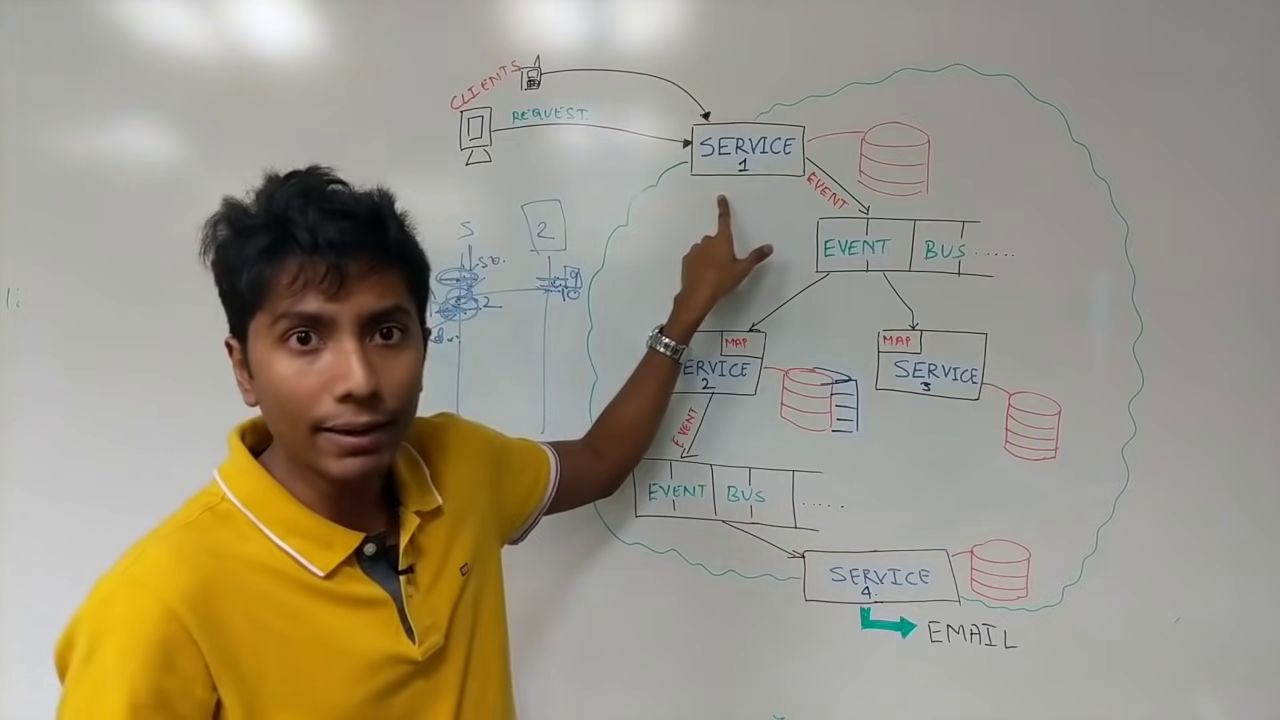 CLIENTS
REQUEST
SERVICE
1
EVENT
EVENT BUS .....
S
2
50.
2
10
MAP
SERVICE
2
MAP
SERVICE
3
EVENT
EVENT BUS .....
SERVICE
4.
EMAIL